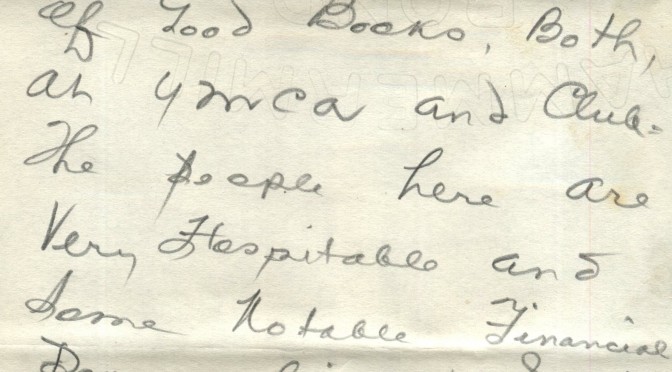 of Good Books, Both,
at YMCA and Club.
The people here are
Very Hospitable and
Some Notable Financial